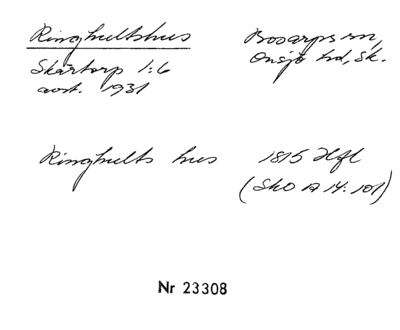 Ringhultshus
Bosarps sn,
Onsjö hd, Sk.
Skårtorp 1:6
avst. 1931
Ringhults hus 1815 Hfl
(SkO A 14:101)
Nr 23308